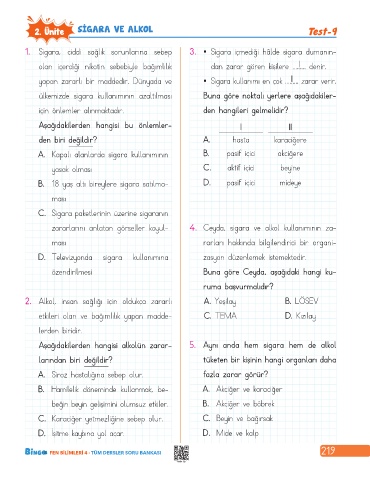 2. Ünite
SİGARA VE ALKOL
Test-9
1. Sigara, ciddi sağlık sorunlarına sebep
olan içerdiği nikotin sebebiyle bağımlılık
yapan zararlı bir maddedir. Dünyada ve
ülkemizde sigara kullanımının azaltılması
için önlemler alınmaktadır.
Aşağıdakilerden hangisi bu önlemler-
den biri değildir?
A. Kapalı alanlarda sigara kullanımının
yasak olması
B. 18 yaş altı bireylere sigara satılma-
ması
C. Sigara paketlerinin üzerine sigaranın
zararlarını anlatan görseller koyul-
ması
D. Televizyonda sigara kullanımına
özendirilmesi
2. Alkol, insan sağlığı için oldukça zararlı
etkileri olan ve bağımlılık yapan madde-
lerden biridir.
Aşağıdakilerden hangisi alkolün zarar-
larından biri değildir?
A. Siroz hastalığına sebep olur.
B. Hamilelik döneminde kullanmak, be-
beğin beyin gelişimini olumsuz etkiler.
C. Karaciğer yetmezliğine sebep olur.
D. İşitme kaybına yol açar.
3. • Sigara içmediği hâlde sigara dumanın-
dan zarar gören kişilere ....I.... denir.
• Sigara kullanımı en çok ....II.... zarar verir.
Buna göre noktalı yerlere aşağıdakiler-
den hangileri gelmelidir?
I II
A. hasta karaciğere
B. pasif içici akciğere
C. aktif içici beyine
D. pasif içici mideye
4. Ceyda, sigara ve alkol kullanımının za-
rarları hakkında bilgilendirici bir organi-
zasyon düzenlemek istemektedir.
Buna göre Ceyda, aşağıdaki hangi ku-
ruma başvurmalıdır?
A. Yeşilay B. LÖSEV
C. TEMA D. Kızılay
5. Aynı anda hem sigara hem de alkol
tüketen bir kişinin hangi organları daha
fazla zarar görür?
A. Akciğer ve karaciğer
B. Akciğer ve böbrek
C. Beyin ve bağırsak
D. Mide ve kalp
BinGo FEN BİLİMLERİ 4 - TÜM DERSLER SORU BANKASI
219